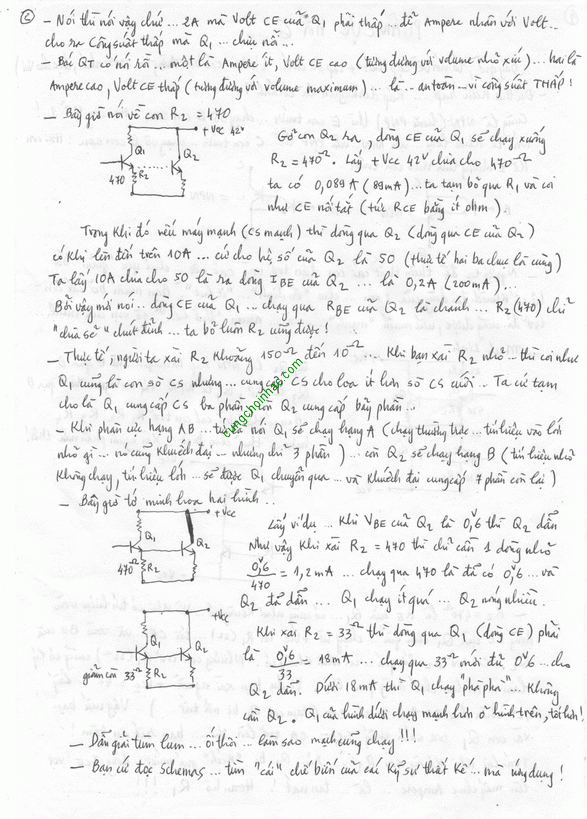 ②
- Nói thì nói vậy chứ ... 2A mà Volt CE của Q1 phải thấp ... để Ampere nhân với Volt..
cho ra công suất thấp mà Q1 ... chịu nổi ..
- Bài QT có nói rõ ... một là Ampere ít, Volt CE cao (tương đương với volume nhỏ xíu) ... hai là
Ampere cao, Volt CE thấp (tương đương với volume maximum) ... là .. an toàn - vì công suất THẤP !
- Bây giờ nói về con R2 = 470
+ Vcc 42V
Q1
Q2
470
R2
Gỡ con Q2 ra, dòng CE của Q1 sẽ chạy xuống
R2 = 470Ω. Lấy + Vcc 42V chia cho 470Ω
ta có 0,089A (89mA) ... ta tạm bỏ qua R1 và coi
như CE nối tắt (tức RCE bằng ít ohm).
Trong khi đó nếu máy mạnh (CS mạnh) thì dòng qua Q2 (dòng qua CE của Q2)
có khi lên đến trên 10A ... cứ cho hệ số của Q2 là 50 (thực tế hai ba chục là cùng)
Ta lấy 10A chia cho 50 là ra dòng IBE của Q2 ... là 0,2A (200mA) ..
Bởi vậy mới nói .. dòng CE của Q1 .. chạy qua RBE của Q2 là chánh ... R2 (470) chỉ
"chia sẻ" chút đỉnh ... ta bỏ luôn R2 cũng được !
- Thực tế, người ta xài R2 khoảng 150Ω đến 10Ω ... Khi bạn xài R2 nhỏ .. thì coi như
Q1 cũng là con sò CS nhưng ... cung cấp CS cho loa ít hơn sò CS cuối .. Ta cứ tạm
cho là Q1 cung cấp CS ba phần .. còn Q2 cung cấp bảy phần ..
- Khi phân cực hạng AB ... ta nói Q1 sẽ chạy hạng A (chạy thường trực .. tín hiệu vào lớn
nhỏ gì ... nó cũng khuếch đại - nhưng chỉ 3 phần) ... còn Q2 sẽ chạy hạng B (tín hiệu nhỏ
không chạy, tín hiệu lớn ... sẽ được Q1 chuyển qua ... và khuếch đại cung cấp 7 phần còn lại)
- Bây giờ tớ minh họa hai hình ..
+ Vcc
Q1
Q2
470Ω
R2
Lấy ví dụ ... Khi VBE của Q2 là 0,6V thì Q2 dẫn
Như vậy khi xài R2 = 470 thì chỉ cần 1 dòng nhỏ
0,6 / 470 = 1,2mA ... chạy qua 470 là đã có 0,6V ... và
Q2 đã dẫn ... Q1 chạy ít quá ... Q2 nóng nhiều.
+Vcc
Q1
Q2
giảm còn 33Ω
R2
Khi xài R2 = 33Ω thì dòng qua Q1 (dòng CE) phải
là 0,6V / 33 = 18mA ... chạy qua 33Ω mới đủ 0,6V ... cho
Q2 dẫn. Dưới 18mA thì Q1 chạy "phà phà" ... không
cần Q2. Q1 của hình dưới chạy mạnh hơn ở hình trên, tốt hơn !
- Diễn giải tùm lum ... ối thôi .. làm sao mạch cũng chạy !!!
- Bạn cứ đọc schemas ... tìm "cái" chế biến của các kỹ sư thiết kế ... mà ứng dụng !
cungchoinhac.com